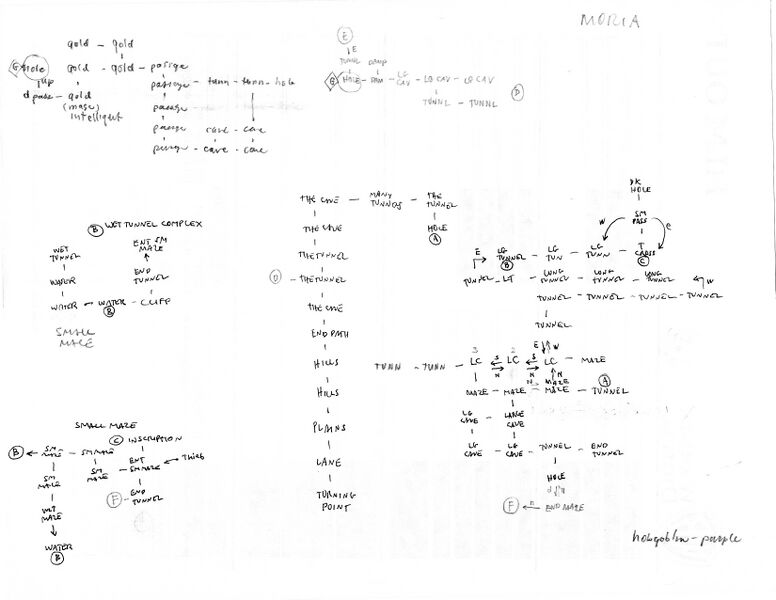 MORIA
gold - gold
G Hole gold - gold - passage
up passage - tunn - tunn - hole
d pass - gold
(mage) passage
intelligent
passage cave - cave
passge - cave - cave
E
E
TUNNL DAMP
G HOLE - RM - LG CAV - LG CAV - LG CAV
TUNNL - TUNNL D
B WET TUNNEL COMPLEX
WET TUNNEL ENT SM MAZE
WATER END TUNNEL
WATER - WATER - CLIFF
B
SMALL MAZE
THE CAVE - MANY TUNNELS - THE TUNNEL
THE CAVE HOLE
A
THE TUNNEL
D - THE TUNNEL
THE CAVE
END PATH
HILLS
HILLS
PLAINS
LANE
TURNING POINT
DK HOLE
SM PASS
W E
E LG TUNNEL - LG TUN - LG TUNN - T CROSS
B C
TUNNEL - LT - LONG TUNNEL - LONG TUNNEL - LONG TUNNEL W
TUNNEL - TUNNEL - TUNNEL - TUNNEL
TUNNEL
E W
3 S 2 S
TUNN - TUNN - LC LC LC - MAZE
N N N
MAZE - MAZE - MAZE - TUNNEL
MAZE A
LG CAVE - LARGE CAVE
LG CAVE - LG CAVE - TUNNEL - END TUNNEL
HOLE
F n END MAZE
SMALL MAZE
C INSCRIPTION
B SM MAZE - SM MAZE ENT
SM MAZE - SM MAZE - THIEF
SM MAZE
F - END TUNNEL
WET MAZE
WATER
B
hobgoblin - purple